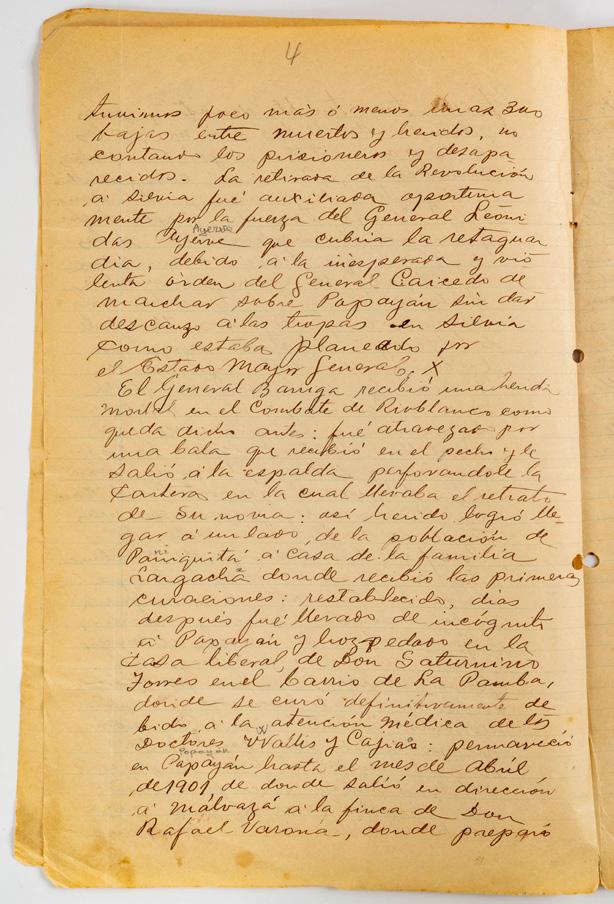 4
tuvimos poco más ó menos unas 300
bajas entre muertos y heridos, no
contando los prisioneros y desapa
recidos. La retirada de la Revolución
á Silvia fué auxiliada oportuna
mente por la fuerza del General Leoni
Ayerve
das Ayerve que cubria la retaguar
dia, debido á la inesperada y vio
lenta órden del General Caicedo de
marchar sobre Popayán sin dar
descanzo á las tropas en Silvia
como estaba planeado por
el Estado Mayor General. X
El General Barriga recibió una herida
mortal en el Combate de Rioblanco como
queda dicho antes: fué atravezado por
una bala que recibió en el pecho y le
salió á la espalda perforandole la
Cartera en la cual llevaba el retrato
de su novia: así herido logró lle-
gar á un lado de la población de
Paniquitá á casa de la familia
Largacha donde recibió las primeras
curaciones: restablecido, dias
después fué llevado de incógnito
á Popayán y hozpedado en la
Casa liberal, de Don Saturnino
Torres en el barrio de La Pamba,
donde se curó definitivamente de
bido á la atención médica de los
Doctores Wallis y Cajiao: permaneció
Popayán
en Popayán hasta el mes de Abril
de 1901, de donde salió en dirección
á Malvazá á la finca de Don
Rafael Varona, donde preparó